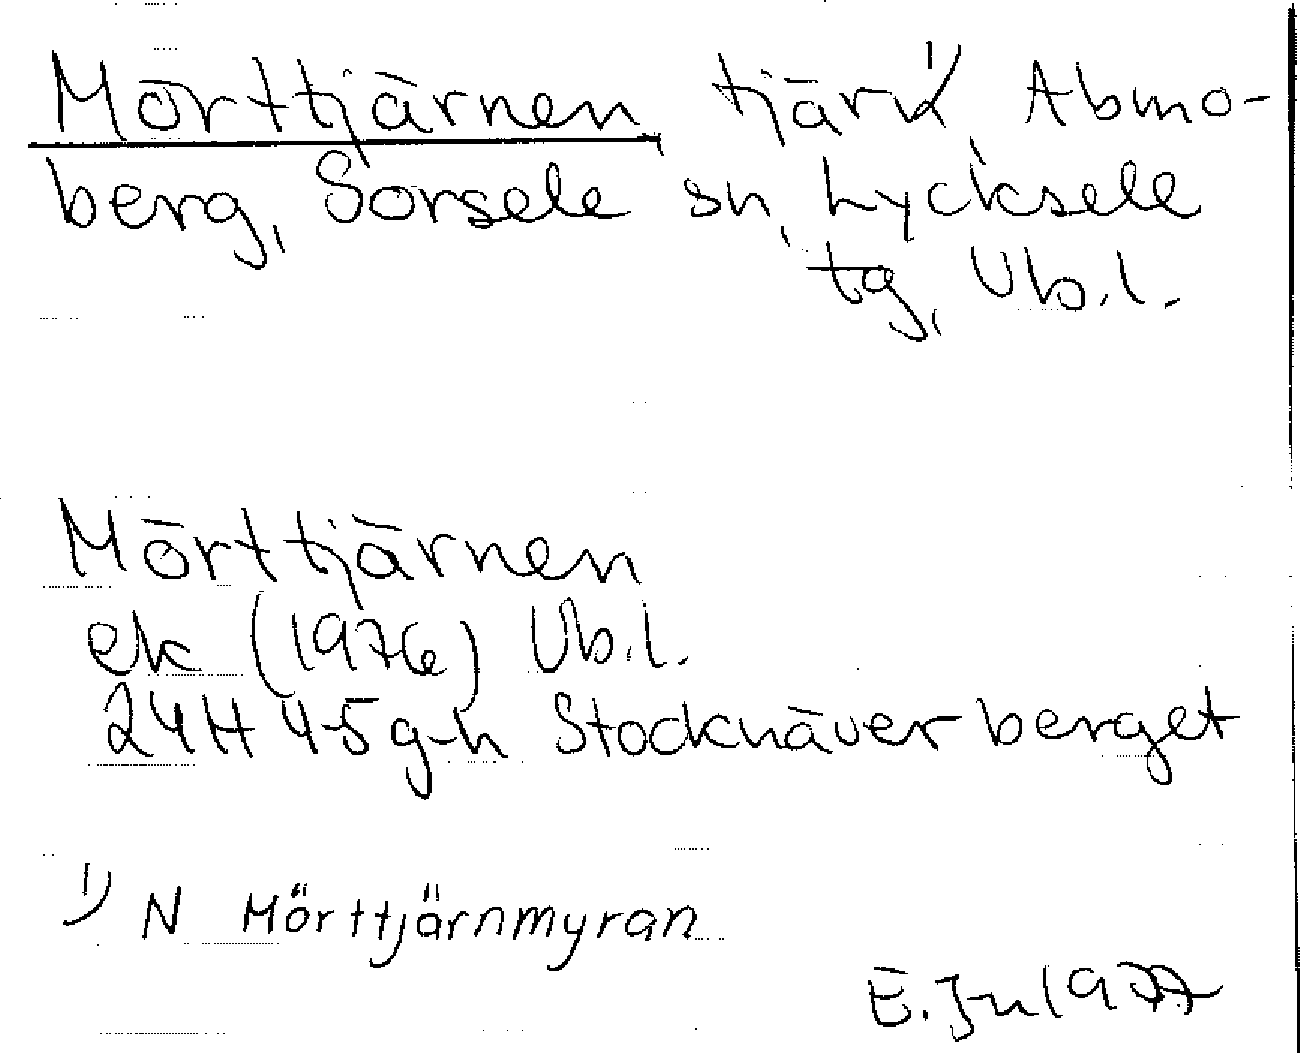 Mörttjärnen tjärn¹⁾, Abmo-
berg, Sorsele sn, Lycksele
tg, Vb.l.
Mörttjärnen
ek (1976) Vb.l.
24H 4-5 g-h Stocknäverberget
1) N Mörttjärnmyran
E. Jn 1977